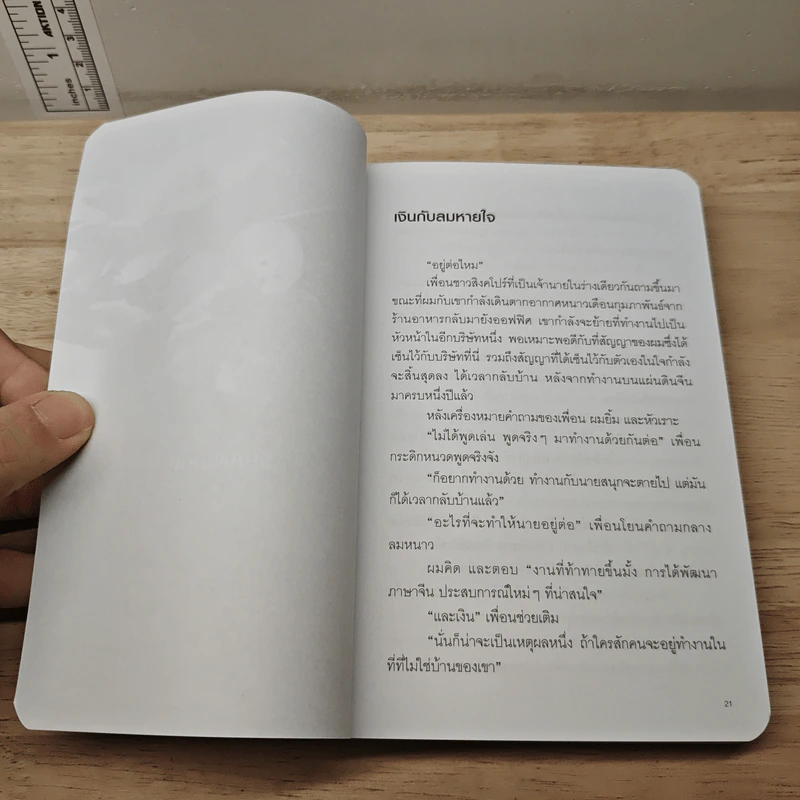 AKTION
inches
1
2
3
4
1
เงินกับลมหายใจ
“อยู่ต่อไหม”
เพื่อนชาวสิงคโปร์ที่เป็นเจ้านายในร่างเดียวกันถามขึ้นมา
ขณะที่ผมกับเขากำลังเดินตากอากาศหนาวเดือนกุมภาพันธ์จาก
ร้านอาหารกลับมายังออฟฟิศ เขากำลังจะย้ายที่ทำงานไปเป็น
หัวหน้าในอีกบริษัทหนึ่ง พอเหมาะพอดีกับที่สัญญาของผมซึ่งได้
เซ็นไว้กับบริษัทที่นี่ รวมถึงสัญญาที่ได้เซ็นไว้กับตัวเองในใจกำลัง
จะสิ้นสุดลง ได้เวลากลับบ้าน หลังจากทำงานบนแผ่นดินจีน
มาครบหนึ่งปีแล้ว
หลังเครื่องหมายคำถามของเพื่อน ผมยิ้ม และหัวเราะ
“ไม่ได้พูดเล่น พูดจริงๆ มาทำงานด้วยกันต่อ” เพื่อน
กระดิกหนวดพูดจริงจัง
“ก็อยากทำงานด้วย ทำงานกับนายสนุกจะตายไป แต่มัน
ก็ได้เวลากลับบ้านแล้ว”
“อะไรที่จะทำให้นายอยู่ต่อ” เพื่อนโยนคำถามกลาง
ลมหนาว
ผมคิด และตอบ “งานที่ท้าทายขึ้นมั้ง การได้พัฒนา
ภาษาจีน ประสบการณ์ใหม่ๆ ที่น่าสนใจ”
“และเงิน” เพื่อนช่วยเติม
“นั่นก็น่าจะเป็นเหตุผลหนึ่ง ถ้าใครสักคนจะอยู่ทำงานใน
ที่ที่ไม่ใช่บ้านของเขา”
21